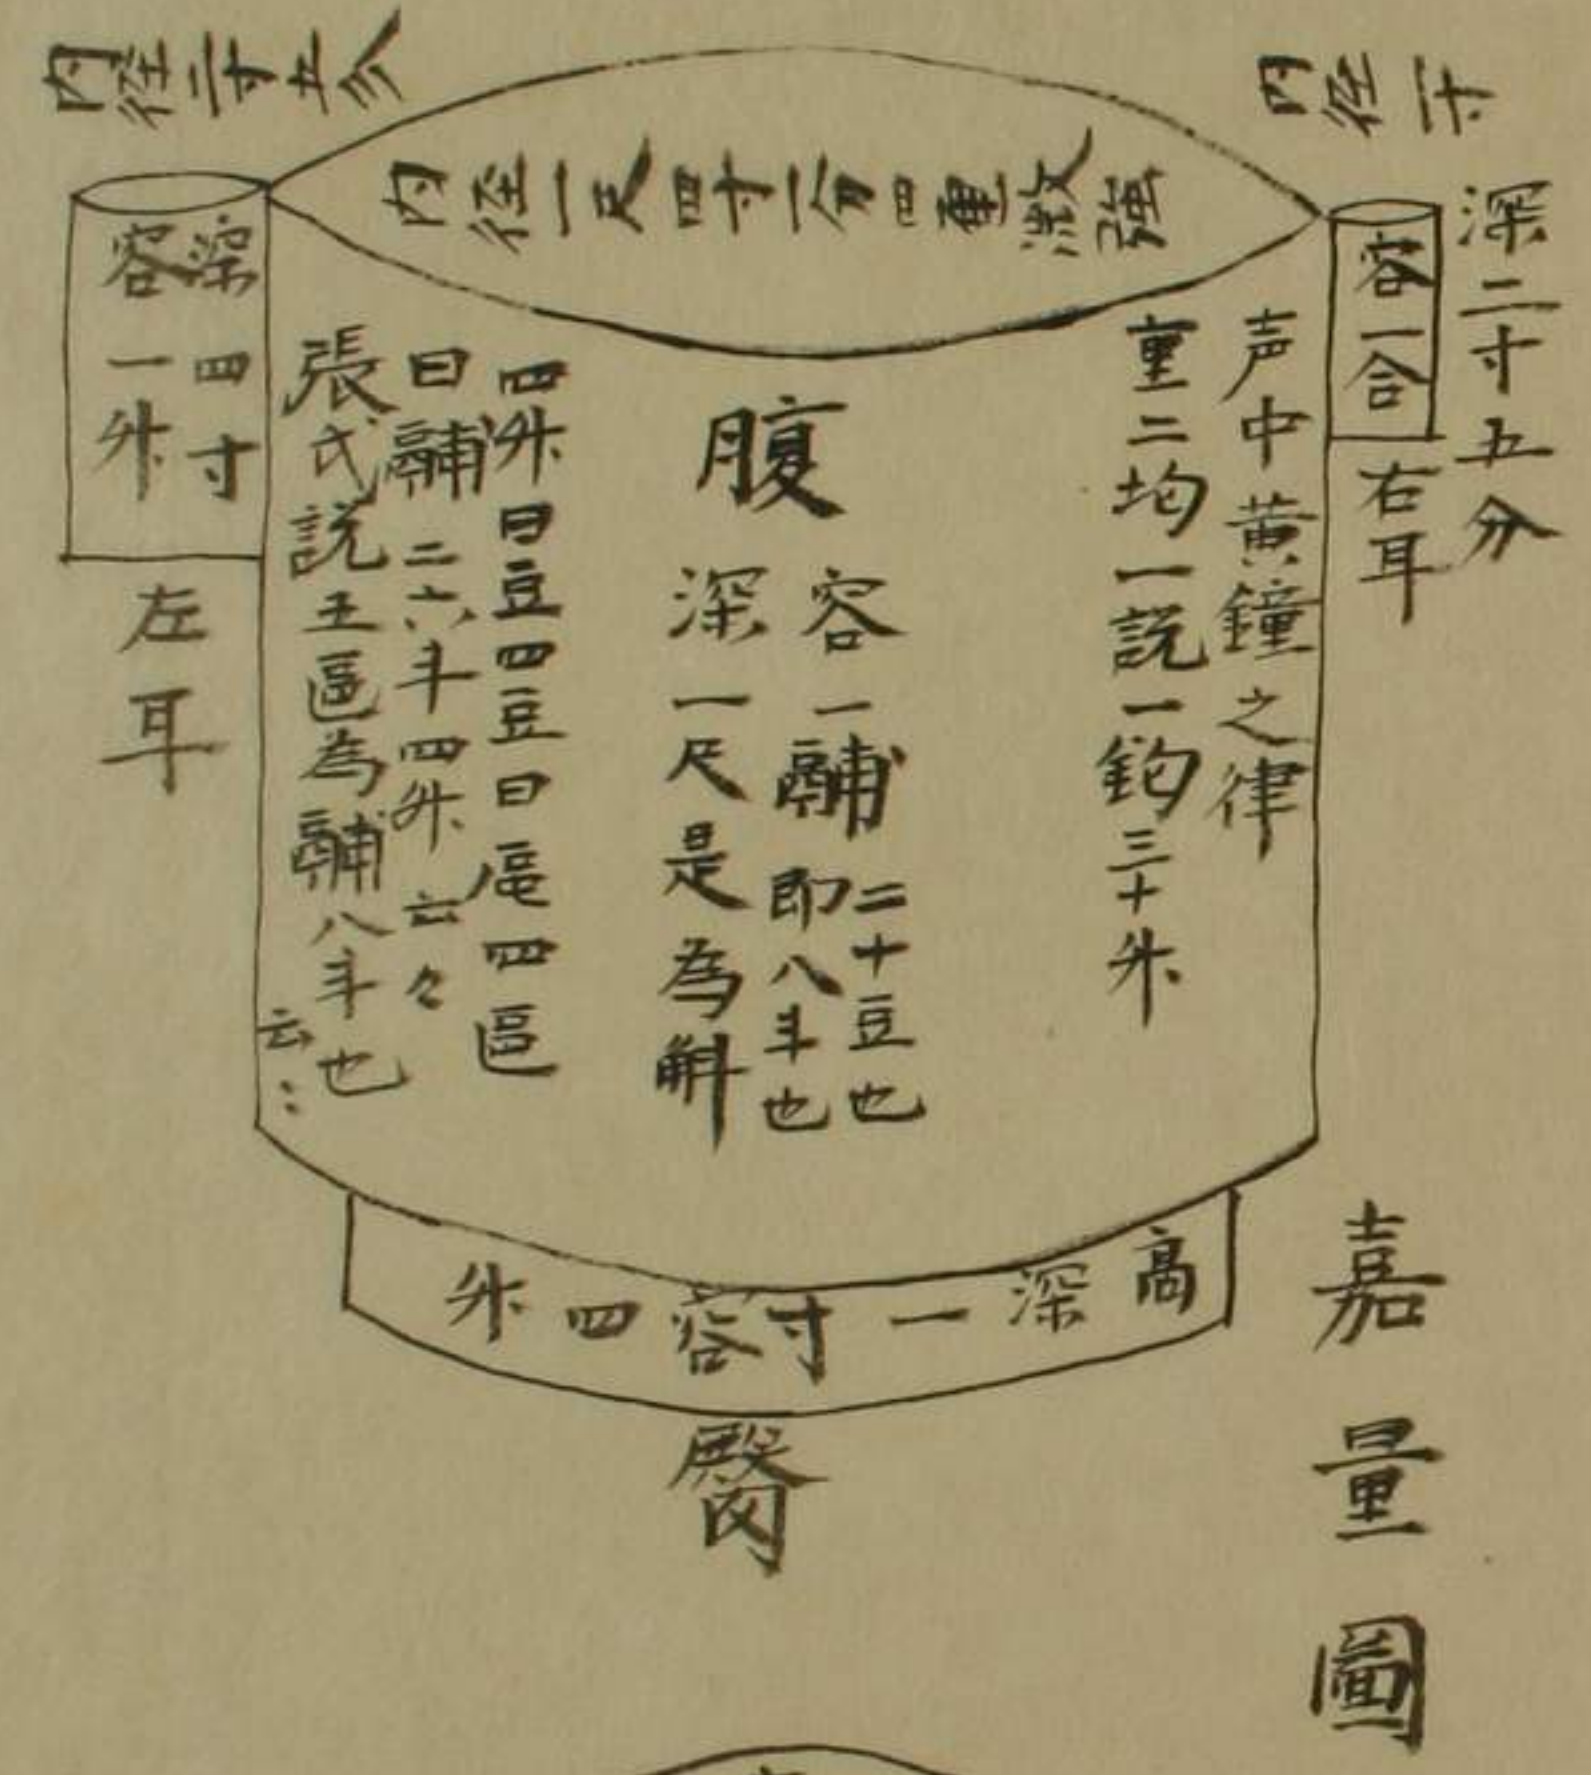 嘉量圖
内径一寸
深二寸五分
容一合
右耳
内径一尺四寸二分四重
強
声中黄鐘之律
重二均一説一鈞三十升
腹
容一鬴二十豆也
即八斗也
深一尺是為斛
四升曰豆四豆曰區四區
曰鬴二六斗四升云々
張氏説五區為鬴八斗也
云〻
内径二寸五分
深四寸
容一升
左耳
高深一寸容四升
臀